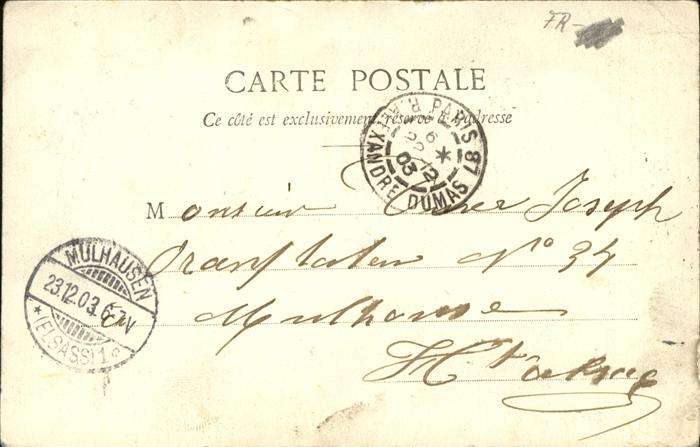 FR-
CARTE POSTALE
Ce côté est exclusivement réservé à l'adresse
PARIS 87
R. ALEXANDRE DUMAS
6
22 12
03
Monsieur Joseph
N° 34
Mulhouse
Hte Alsace
MULHAUSEN
23.12.03.6-7V
* (ELSASS) 1 c